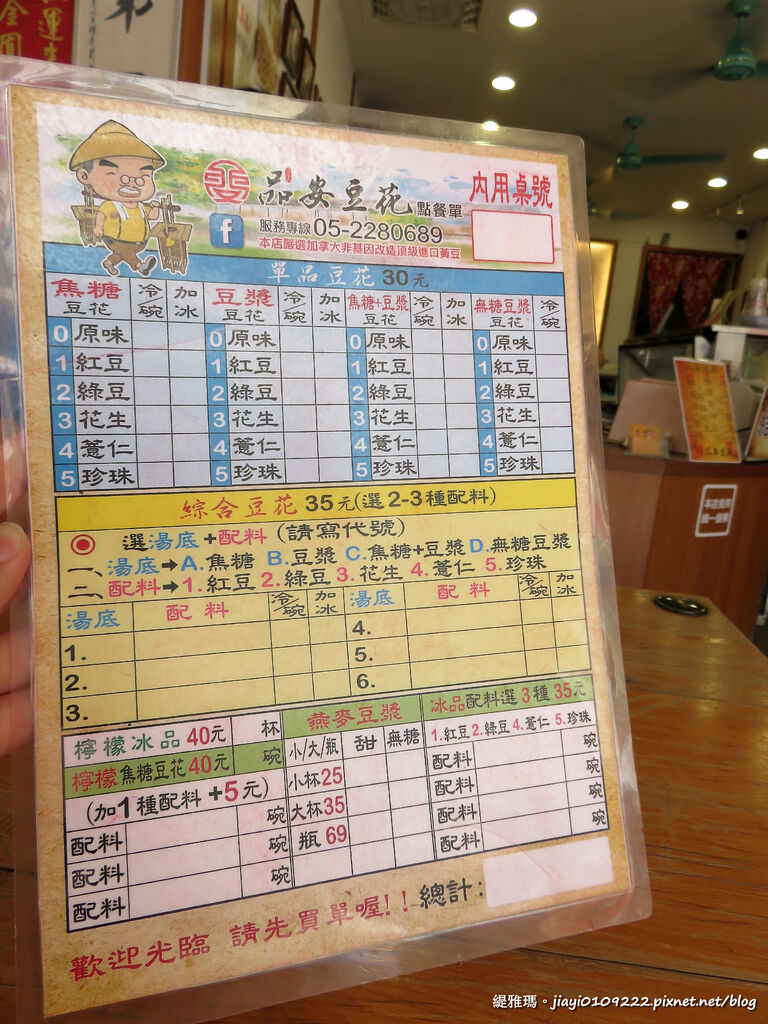 品安豆花 點餐單
內用桌號
服務專線 05-2280689
本店嚴選加拿大非基因改造頂級進口黃豆
單品豆花 30元
焦糖豆花 冷/碗 加冰 豆漿豆花 冷/碗 加冰 焦糖+豆漿豆花 冷/碗 加冰 無糖豆漿豆花 冷/碗
0 原味 0 原味 0 原味 0 原味
1 紅豆 1 紅豆 1 紅豆 1 紅豆
2 綠豆 2 綠豆 2 綠豆 2 綠豆
3 花生 3 花生 3 花生 3 花生
4 薏仁 4 薏仁 4 薏仁 4 薏仁
5 珍珠 5 珍珠 5 珍珠 5 珍珠
綜合豆花 35元(選2-3種配料)
選湯底+配料(請寫代號)
一、湯底→A.焦糖 B.豆漿 C.焦糖+豆漿 D.無糖豆漿
二、配料→1.紅豆 2.綠豆 3.花生 4.薏仁 5.珍珠
湯底 配料 冷/碗 加冰 湯底 配料 冷/碗 加冰
1. 4.
2. 5.
3. 6.
檸檬冰品40元 杯
檸檬焦糖豆花40元 碗
(加1種配料+5元)
配料 碗
配料 碗
配料 碗
燕麥豆漿
小/大/瓶 甜 無糖
小杯25
大杯35
瓶69
冰品配料選3種35元
1.紅豆 2.綠豆 4.薏仁 5.珍珠
配料 碗
配料 碗
配料 碗
配料 碗
歡迎光臨 請先買單喔!! 總計:
緹雅瑪。jiayi0109222.pixnet.net/blog